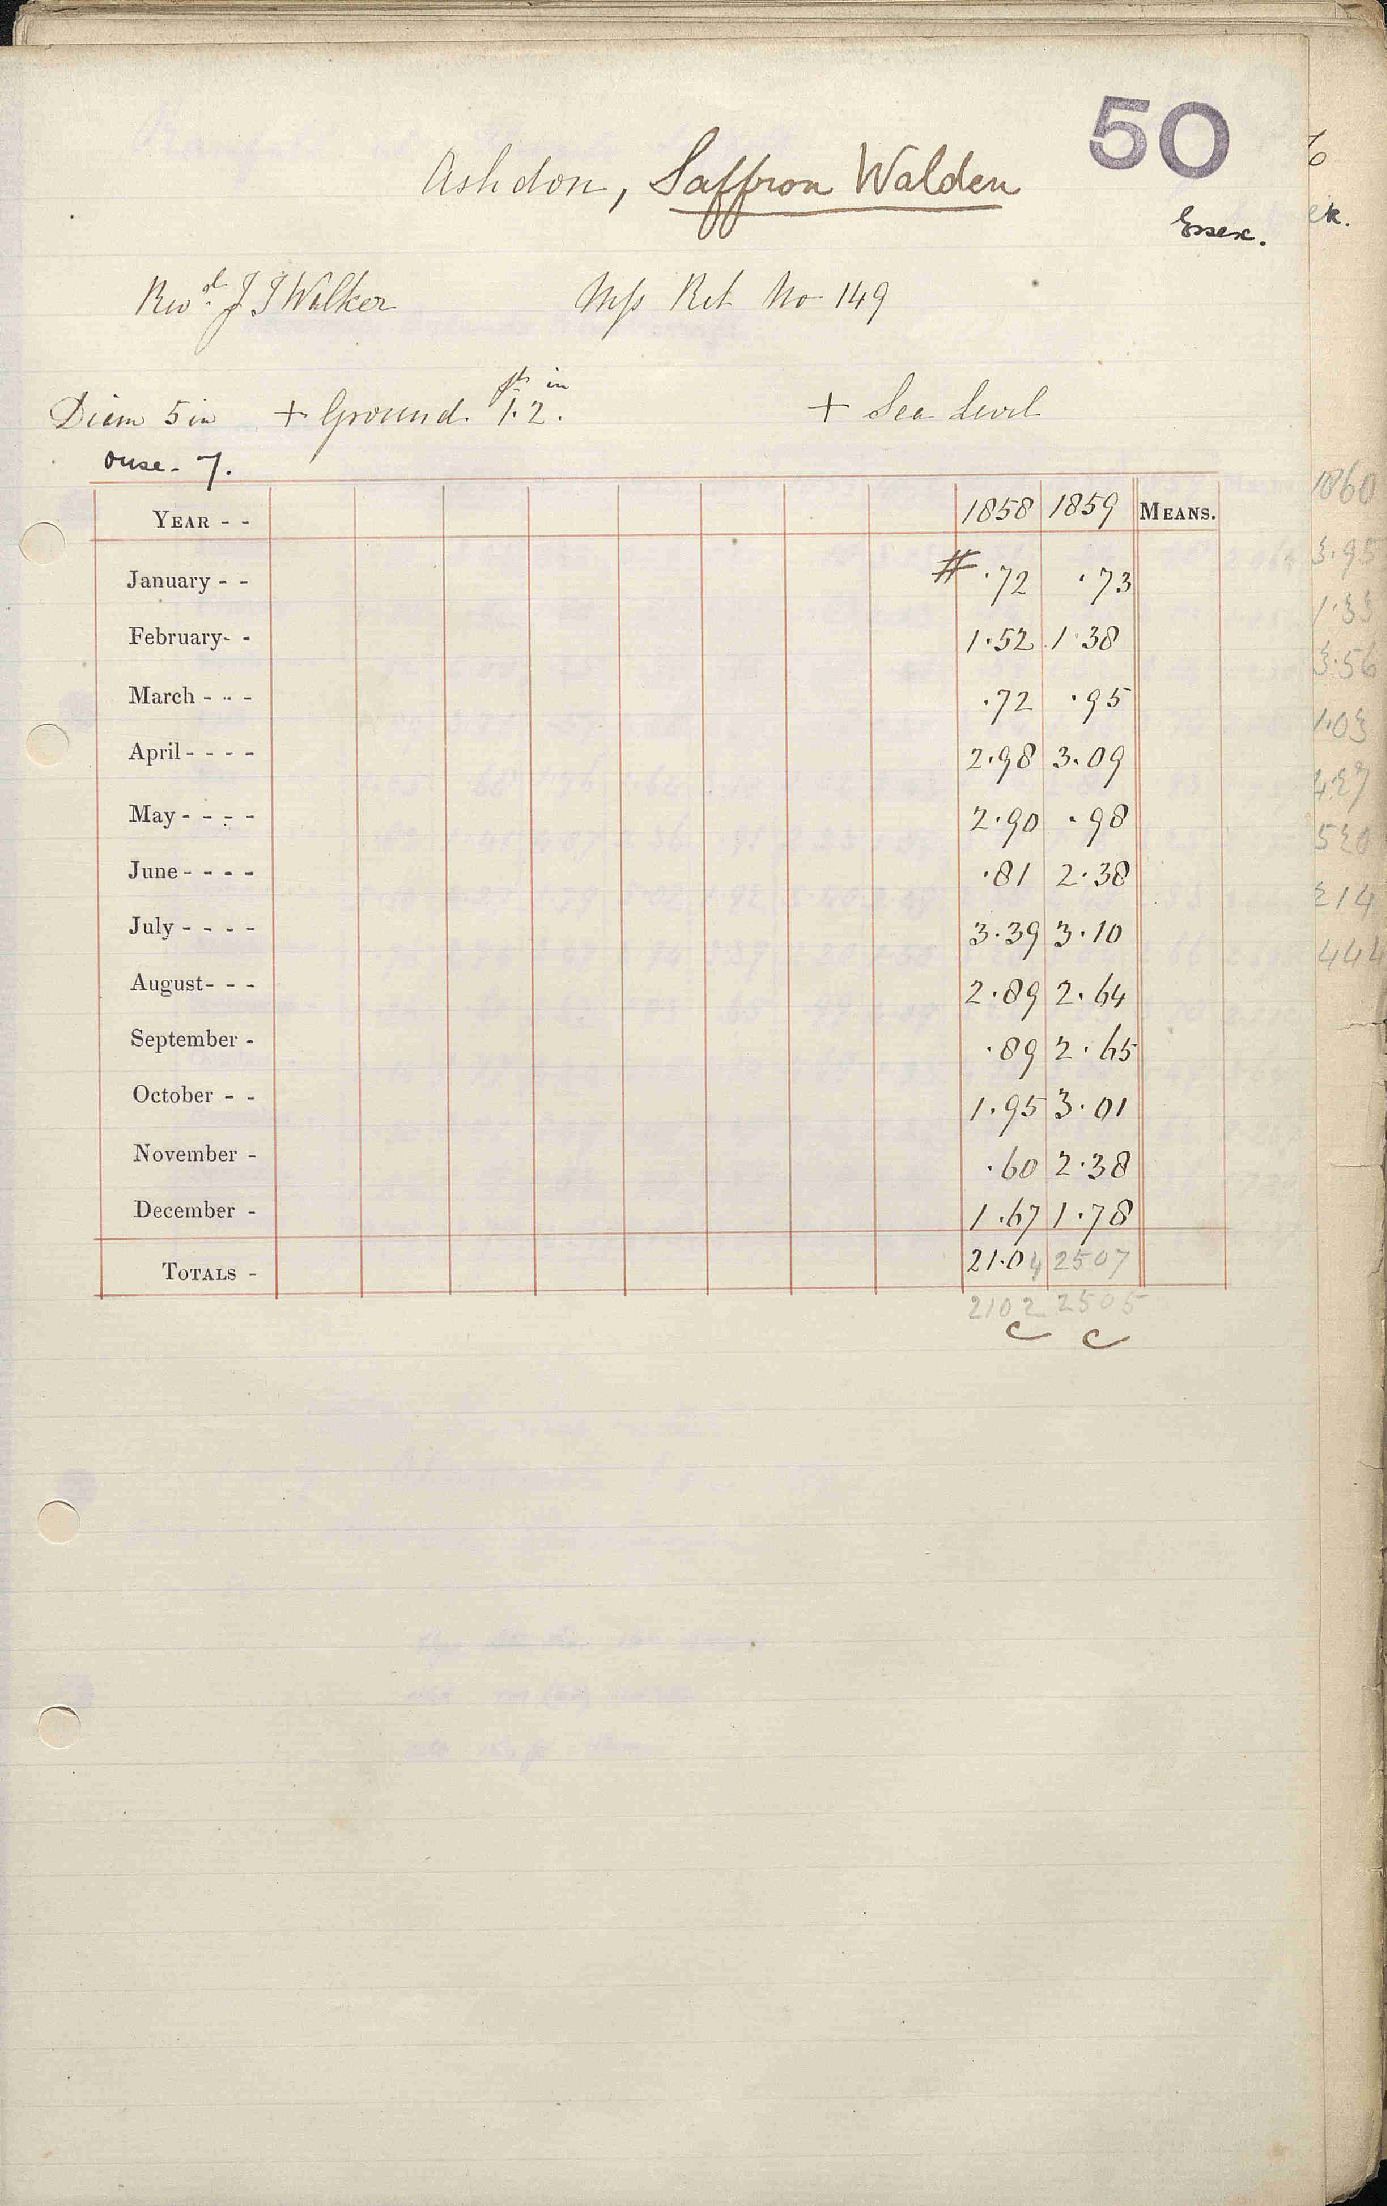 50
Ashdon, Saffron Walden
Essex.
Revd. J J Walker Mss Ret No 149
ft in
Diem 5 in + Ground. 1.2. + Sea Level
Ouse. 7.
YEAR - - 1858 1859 MEANS.
January - - # .72 .73
February- - 1.52 1.38
March - - - .72 .95
April - - - - 2.98 3.09
May - - - - 2.90 .98
June - - - - .81 2.38
July - - - - 3.39 3.10
August- - - 2.89 2.64
September - .89 2.65
October - - 1.95 3.01
November - .60 2.38
December - 1.67 1.78
TOTALS - 21.04 2507
2102 2505
c c
ek.
1860
3.95
1.33
3.56
1.03